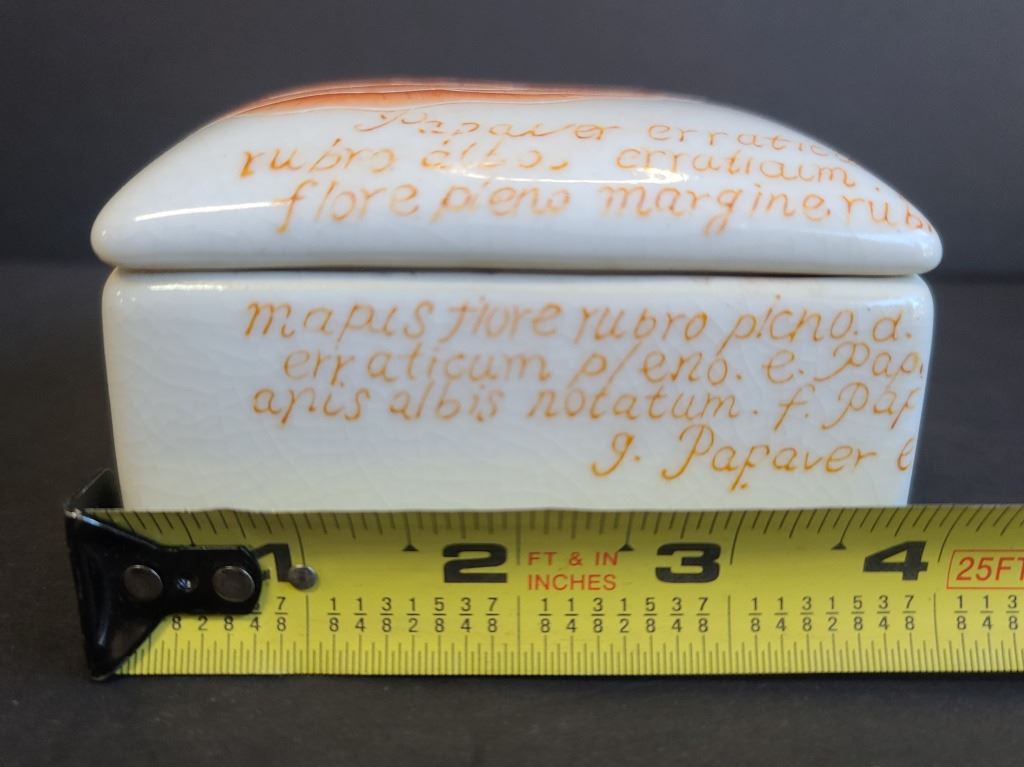 Papaver erratic
rubro albo, erratiaim.
flore pleno margine rub
mapis flore rubro picno. d.
erraticum pleno. e. Pap
apis albis notatum. f. Pap
g. Papaver e
1 2 FT & IN INCHES 3 4 25FT
8 2 8 4 7/8 1/8 1/4 3/8 1/2 5/8 3/4 7/8 1/8 1/4 3/8 1/2 5/8 3/4 7/8 1/8 1/4 3/8 1/2 5/8 3/4 7/8 1/8 1/4 3/8